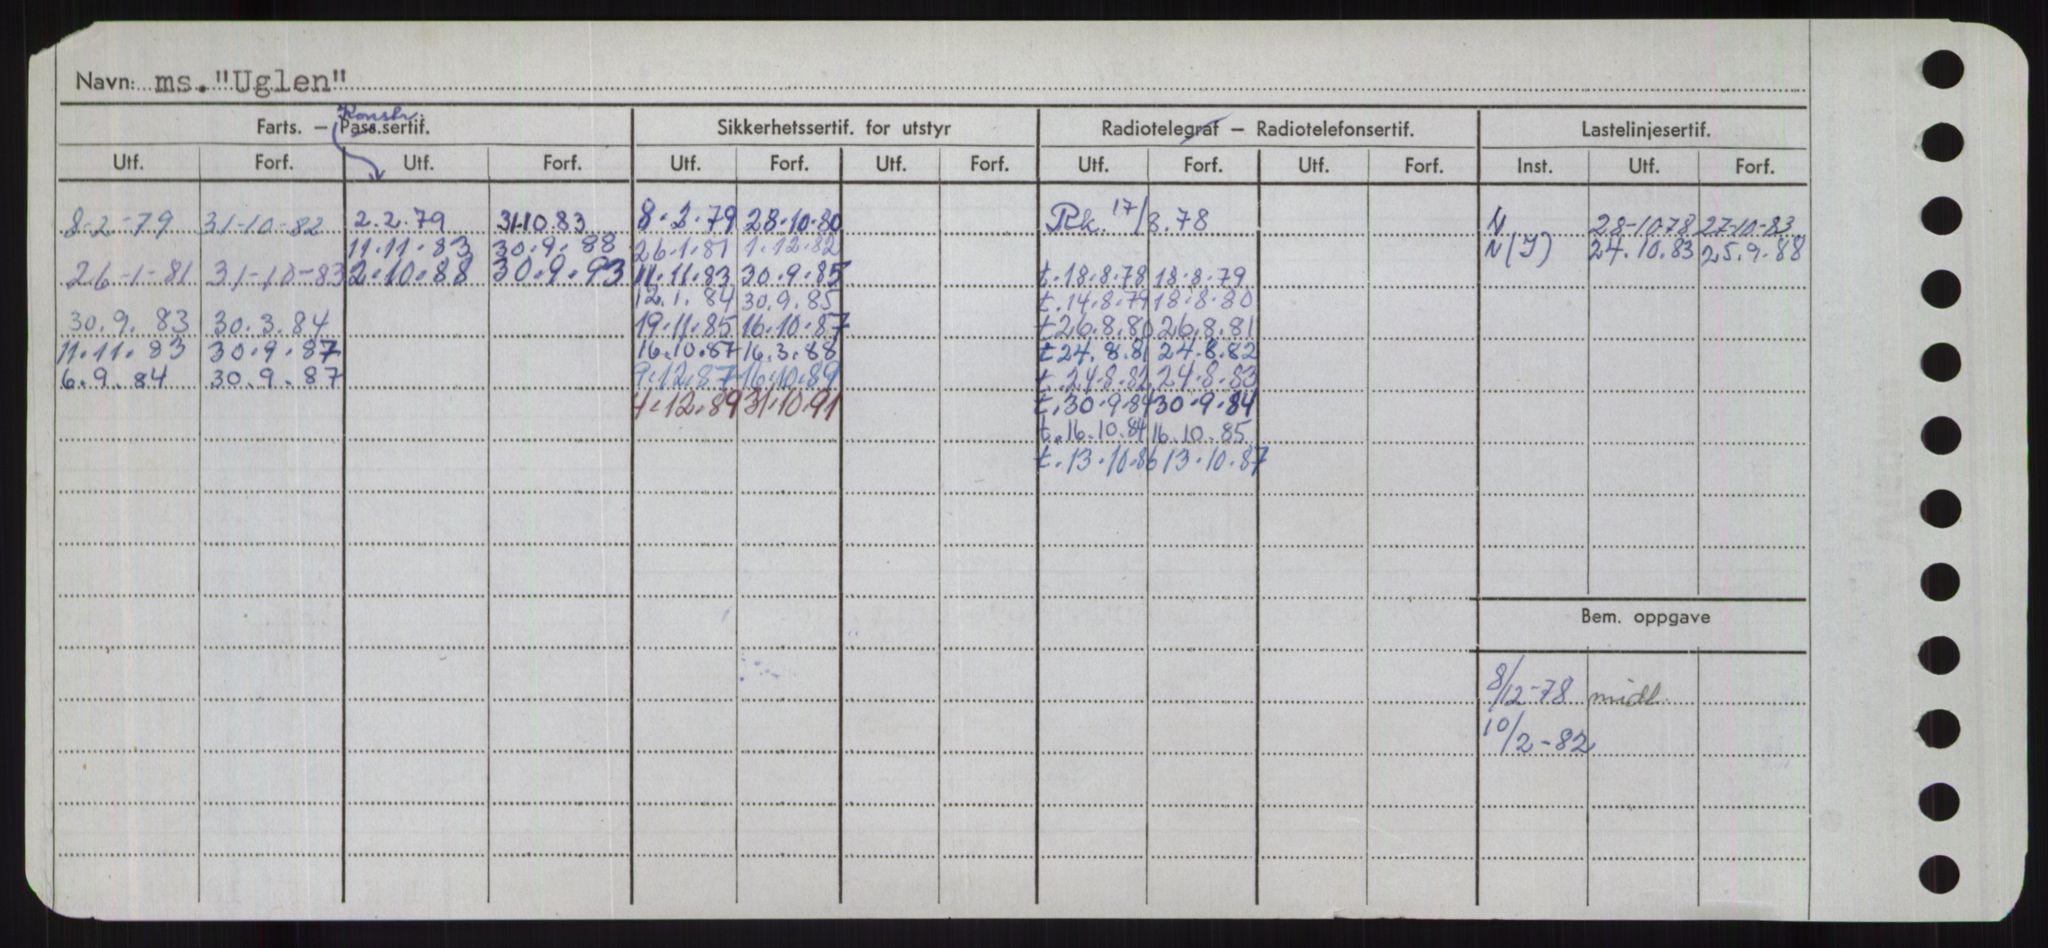 Navn: ms. "Uglen"
Konstr.
Farts. — Pass.sertif. Sikkerhetssertif. for utstyr Radiotelegraf — Radiotelefonsertif. Lastelinjesertif.
Utf. Forf. Utf. Forf. Utf. Forf. Utf. Forf. Utf. Forf. Utf. Forf. Inst. Utf. Forf.
8-2-79 31-10-82 2.2.79 31.10.83 8.2.79 28.10.80 Rk. 17/8.78 N 28-10.78 27-10-83
11.11.83 30.9.88 26.1.81 1.12.82 N(I) 24.10.83 25.9.88
26-1-81 31-10-83 2.10.88 30.9.93 11.11.83 30.9.85 t.18.8.78 18.8.79
12.1.84 30.9.85 t.14.8.79 18.8.80
30.9.83 30.3.84 19.11.85 16.10.87 t26.8.80 26.8.81
11.11.83 30.9.87 16.10.87 16.3.88 t24.8.81 24.8.82
6.9.84 30.9.87 9.12.87 16.10.89 t.24.8.82 24.8.83
4.12.89 31.10.91 t.30.9.84 30.9.84
t.16.10.84 16.10.85
t.13.10.86 13.10.87
Bem. oppgave
8/12-78 midl.
10/2-82